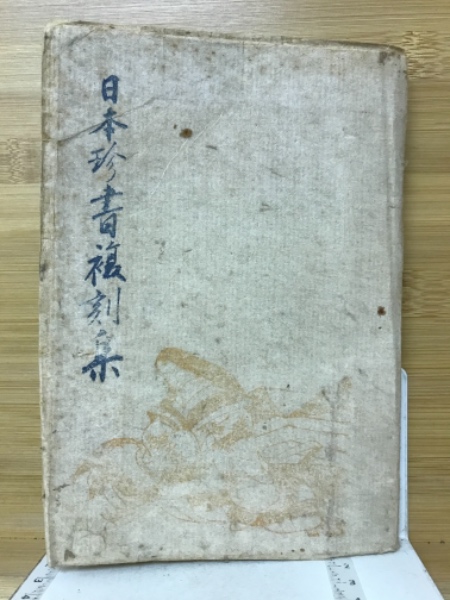 日本珍書複刻集